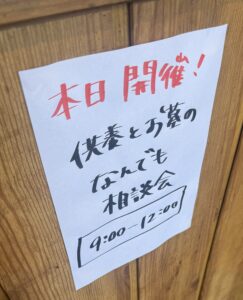 本日開催!
供養とお墓の
なんでも
相談会
9:00-12:00